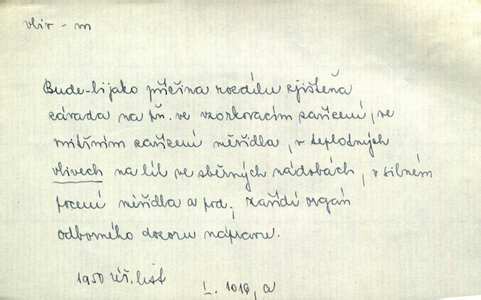 vliv - m
Bude-li jako příčina rozdílu zjištěna
závada na př. ve vzorkovacím zařízení, ve
vnitřním zařízení měřidla, v teplotných
vlivech na líh ve sběrných nádobách, v silném
pocení měřidla a pod., zařídí orgán
odborného dozoru nápravu.
1950 Úř. list
I. 1016, a